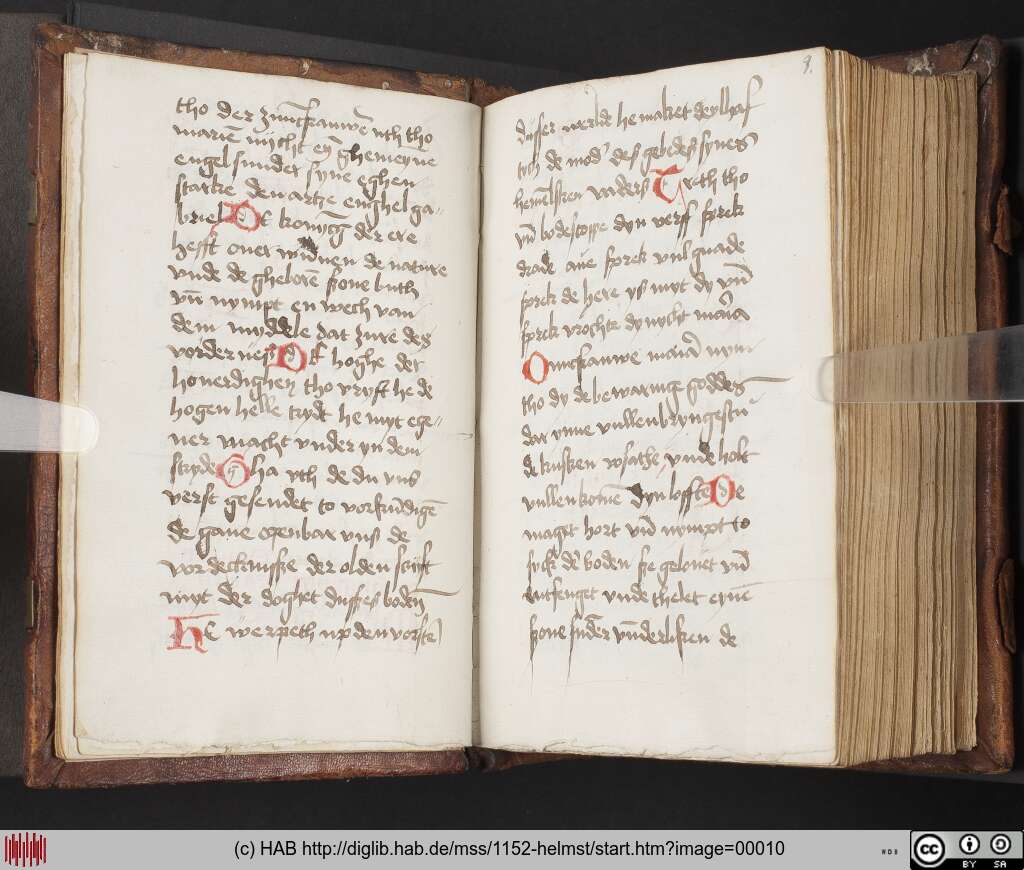 tho der Juncfrauwen uth tho
marien nycht eyn ghemeyne
engel sunder syne eghen
starke de wartze enghel ga
briel De konyng der ere
hefft ouer wunnen de nature
vnde de gheloren sone luth
vnd nympt en wech van
dem myddele dat zure des
vorderues De hoghe der
houerdighen tho vryst he de
hogen helle trydt he myt ege
ner macht vnder yn dem
stryde Gha vth de du vns
verst gesendet to vorkundigen
de gaue openbar vns de
vordecknisse der olden scrift
myt der doghet dusses boden
He werpeth up den vorsten
9.
dusser werlde he maket deylhaf
tich de moder des gebedes synes
hemelsken vaders Treth tho
vnd bodescoppe dyn verss sprek
drade aue sprek vul gnade
sprek de here ys myt dy vnd
sprek vrochte dy nycht maria
O iuncfrauwe maria nym
tho dy de bewaringe goddes
dar ynne vullenbryngestu
de kusken vnde holt
vullenkomen dyn loffte De
maget hort vnd nympt to
syck den boden se gelouet vnd
untfenget vnde thelet eynen
sone sunder vunderliken de
(c) HAB http://diglib.hab.de/mss/1152-helmst/start.htm?image=00010
WDB
cc BY SA